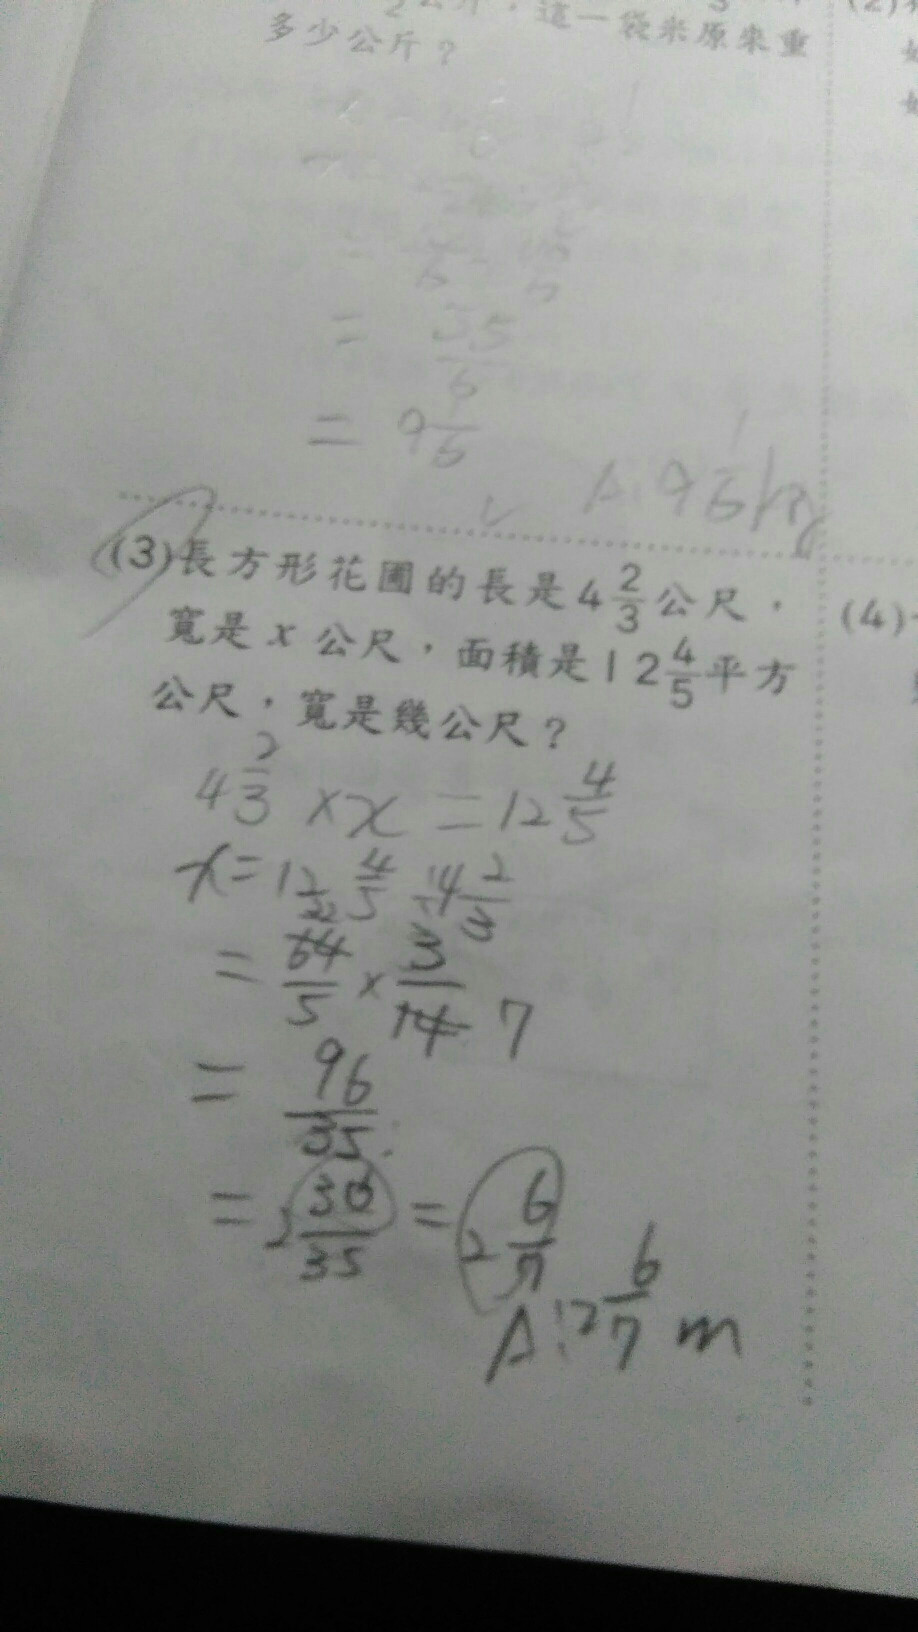 公斤，這一袋米原來重
多少公斤？
= 35/6
= 9 1/6
A: 9 1/6 kg
(3)長方形花圃的長是4 2/3公尺，
寬是x公尺，面積是12 4/5平方
公尺，寬是幾公尺？
4 2/3 × x = 12 4/5
x = 12 4/5 ÷ 4 2/3
= 64/5 × 3/14 7
= 96/35
= 2 30/35 = 2 6/7
A: 2 6/7 m
(2)
(4)